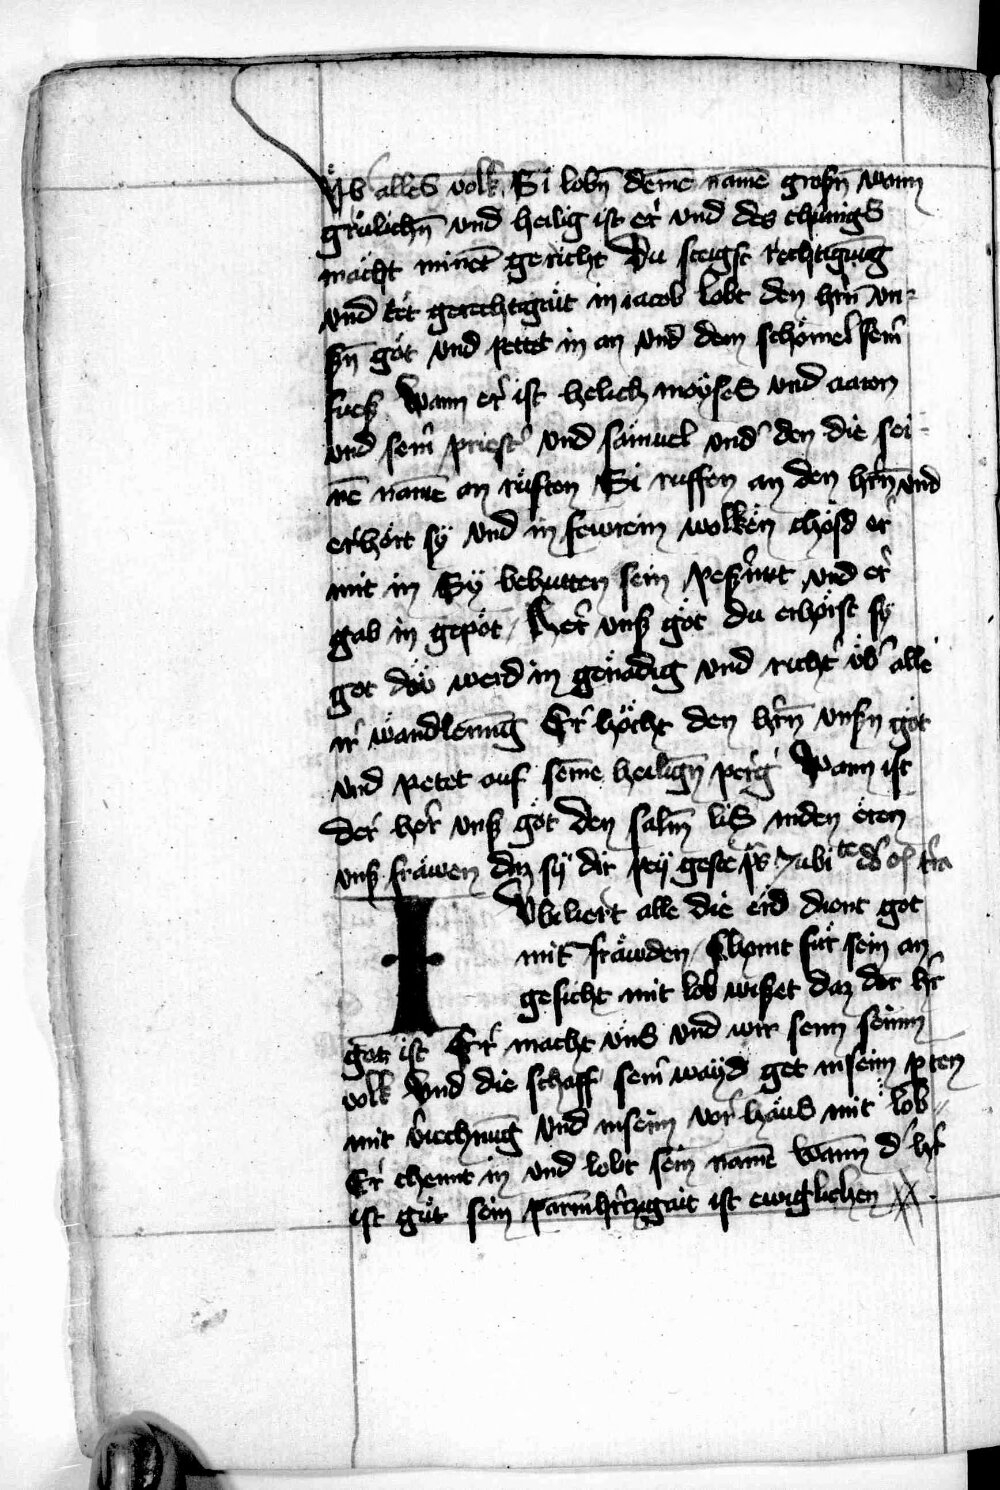 Vͤb alles volk Si lobn̄ deīnē namē grosn̄ wann
grülichn̄ und heilig ist er und des chünigs
mächt minnet gericht Du steigst rechtigung
und tët gerechtigait in iacob lobt den hrn̄ vn⸗
sn̄ got und petet in an und dem schömel seinˀ
fuesz Wann er ist heilich moyses und aaron
und seinˀ priestˀ und sämuel und den die sei⸗
nē namē an ruͤften Si ruffen an den hrn̄ und
erhört sÿ und in fewrein wolken chösd er
mit in Sÿ behutten sein pezeugnuͤs und er
gab in gepöt Her vnsz göt du erhörst sÿ
got dw werd in genädig und richt vͤbˀ alle
ir wändlerung Er höcht den hrn̄ vnsn̄ göt
und petet auf seīnē heilign̄ perg Wann ist
der her vnsz göt den salm̄ lis in den eren
vnsz fräwen daz sÿ dir peÿ geste p̄s Jubilate deo omnis terra
IVbiliert alle die erd dient got
mit fräwden Chömt für sein an
gesicht mit lob wiszet daz der hr̄
got ist Er macht vns und wir senn seinn
volk Vnd die schaff seinˀ wayd get in sein porten
mit veriechnug und in sein vor häus mit lob⸗
Er chennt in und lobt sein namē wann dˀ hr̄
ist guͤt sein parmhertzigait ist ewigklichen